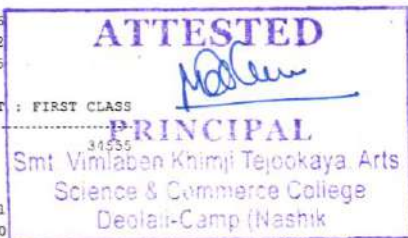 ATTESTED
: FIRST CLASS
PRINCIPAL
34555
Smt. Vimlaben Khimji Tejookaya. Arts
Science & Commerce College
Deolali-Camp (Nashik